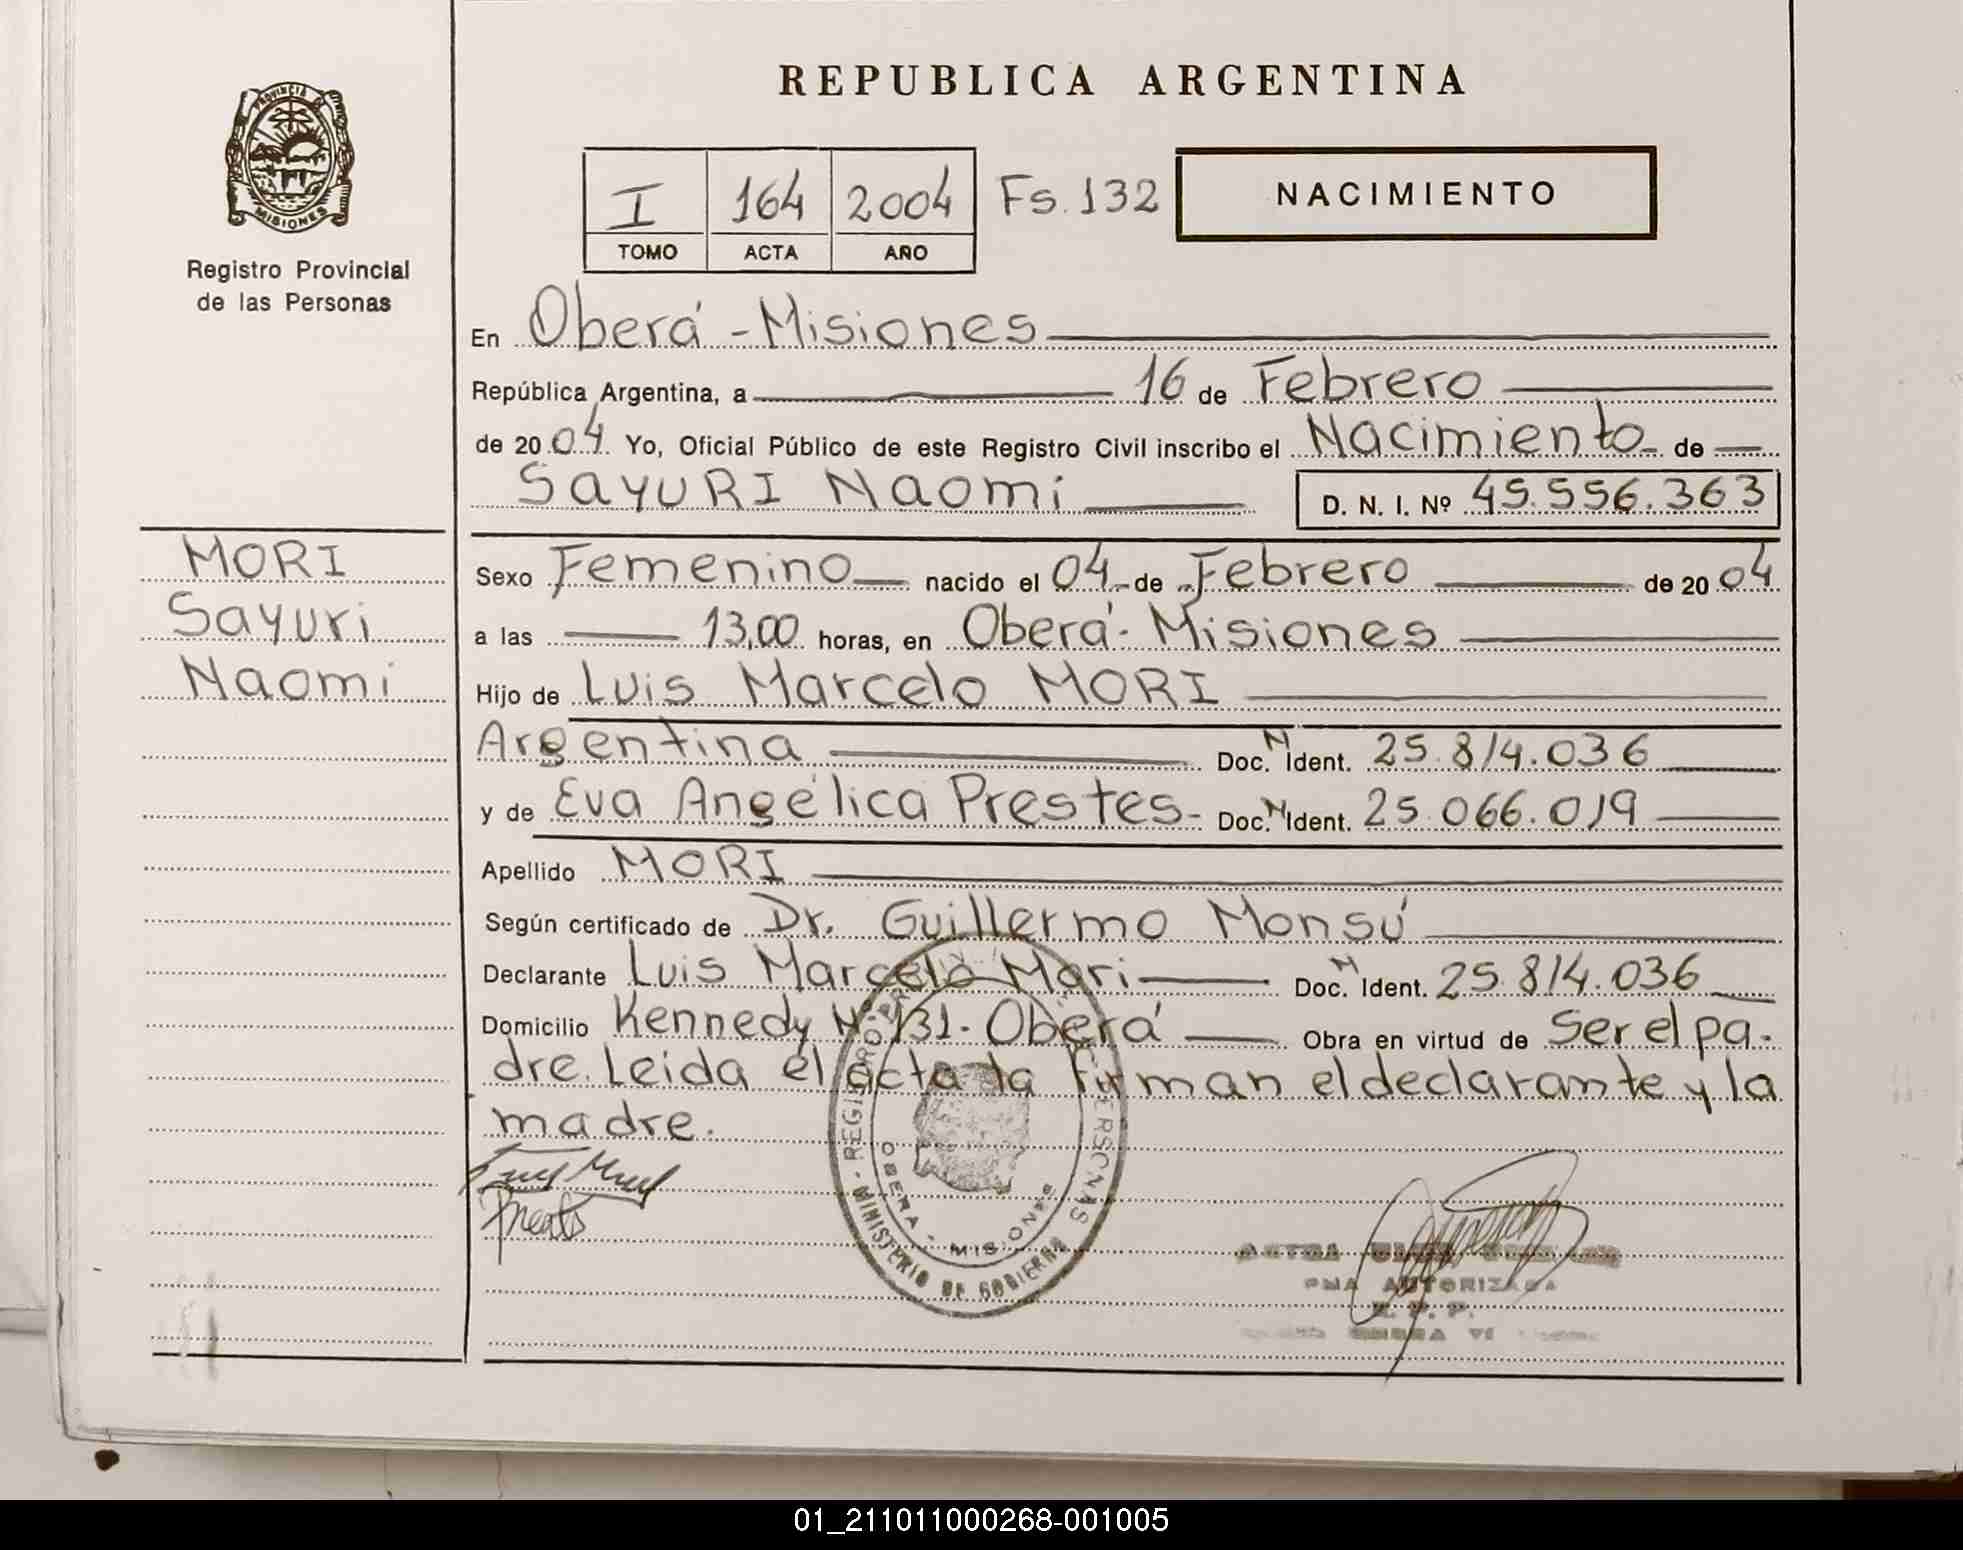 REPUBLICA ARGENTINA
PROVINCIA DE
MISIONES
Registro Provincial
de las Personas
I 164 2004 Fs. 132
TOMO ACTA AÑO
NACIMIENTO
En Oberá - Misiones
República Argentina, a 16 de Febrero
de 2004 Yo, Oficial Público de este Registro Civil inscribo el Nacimiento de
SAYURI Naomi D. N. I. Nº 45.556.363
MORI
Sayuri
Naomi
Sexo Femenino nacido el 04 de Febrero de 2004
a las 13,00 horas, en Oberá - Misiones
Hijo de Luis Marcelo MORI
Argentina Doc. N Ident. 25.814.036
y de Eva Angélica Prestes - Doc. N Ident. 25.066.019
Apellido MORI
Según certificado de Dr. Guillermo Monsú
Declarante Luis Marcelo Mori Doc. N Ident. 25.814.036
Domicilio Kennedy Nº 131 - Oberá Obra en virtud de Ser el pa-
dre. Leida el acta la firman el declarante y la
madre.
REGISTRO PERSONAS
OBERA - MISIONES
MINISTERIO DE GOBIERNO
AUTORIZADA
01_211011000268-001005